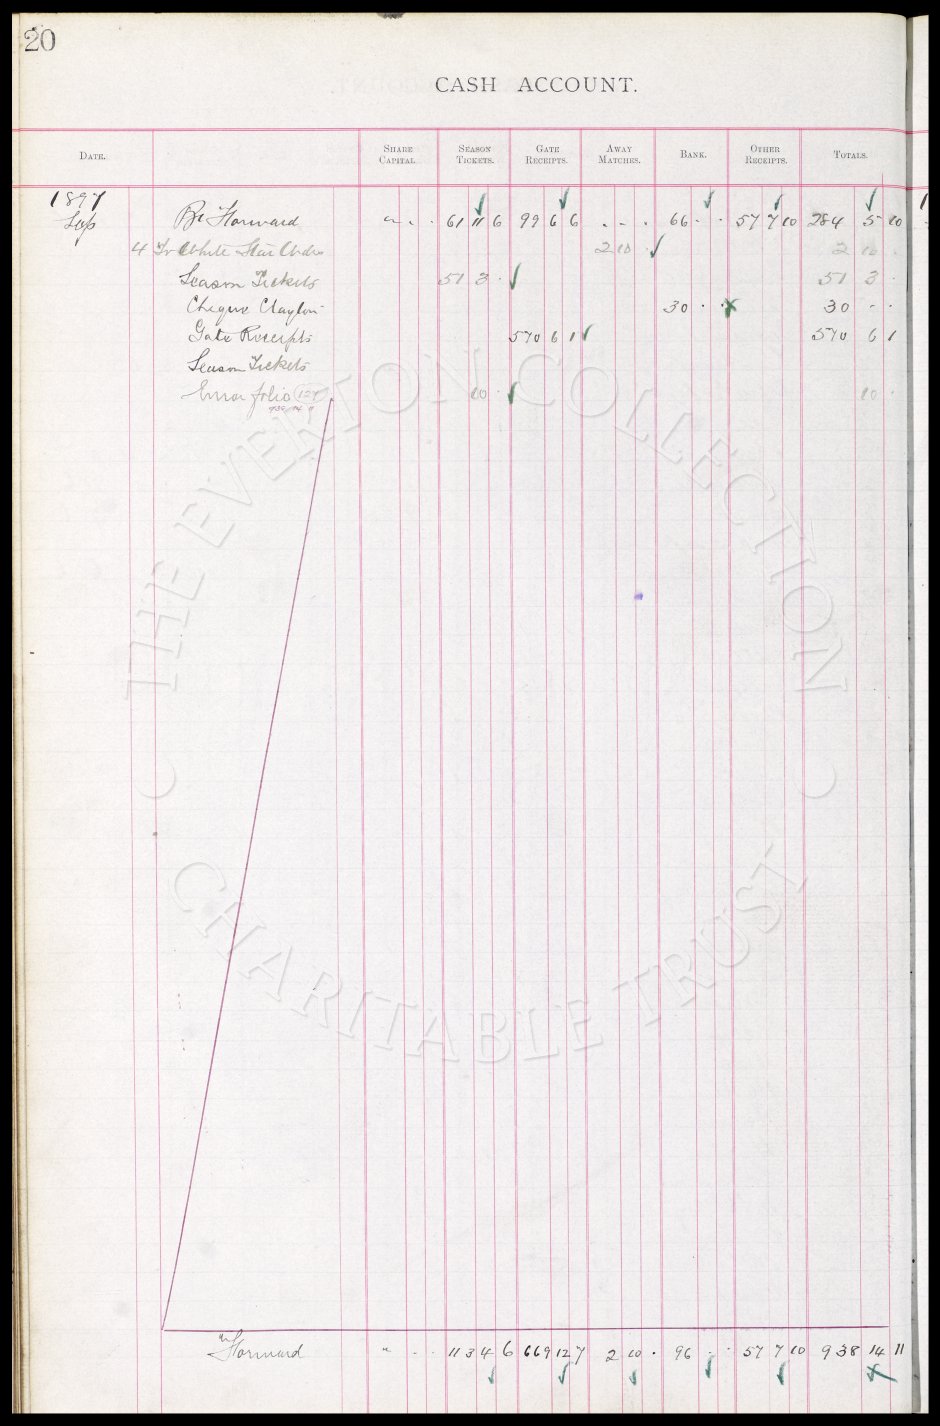 20
CASH ACCOUNT.
DATE. SHARE CAPITAL. SEASON TICKETS. GATE RECEIPTS. AWAY MATCHES. BANK. OTHER RECEIPTS. TOTALS.
1897
Sep Bt Forward " . . 61 11 6 99 6 6 . . . 66 . . 57 7 10 284 5 10
4 To White Star 2 10 . 2 10 .
Season Tickets 51 3 . 51 3 .
Cheque Clayton 30 . . 30 . .
Gate Receipts 570 6 1 570 6 1
Season Tickets
Error folio 127 10 . 10 .
938 14 11
Forward " . . 113 4 6 669 12 7 2 10 . 96 . . 57 7 10 938 14 11
THE EVERTON COLLECTION
CHARITABLE TRUST